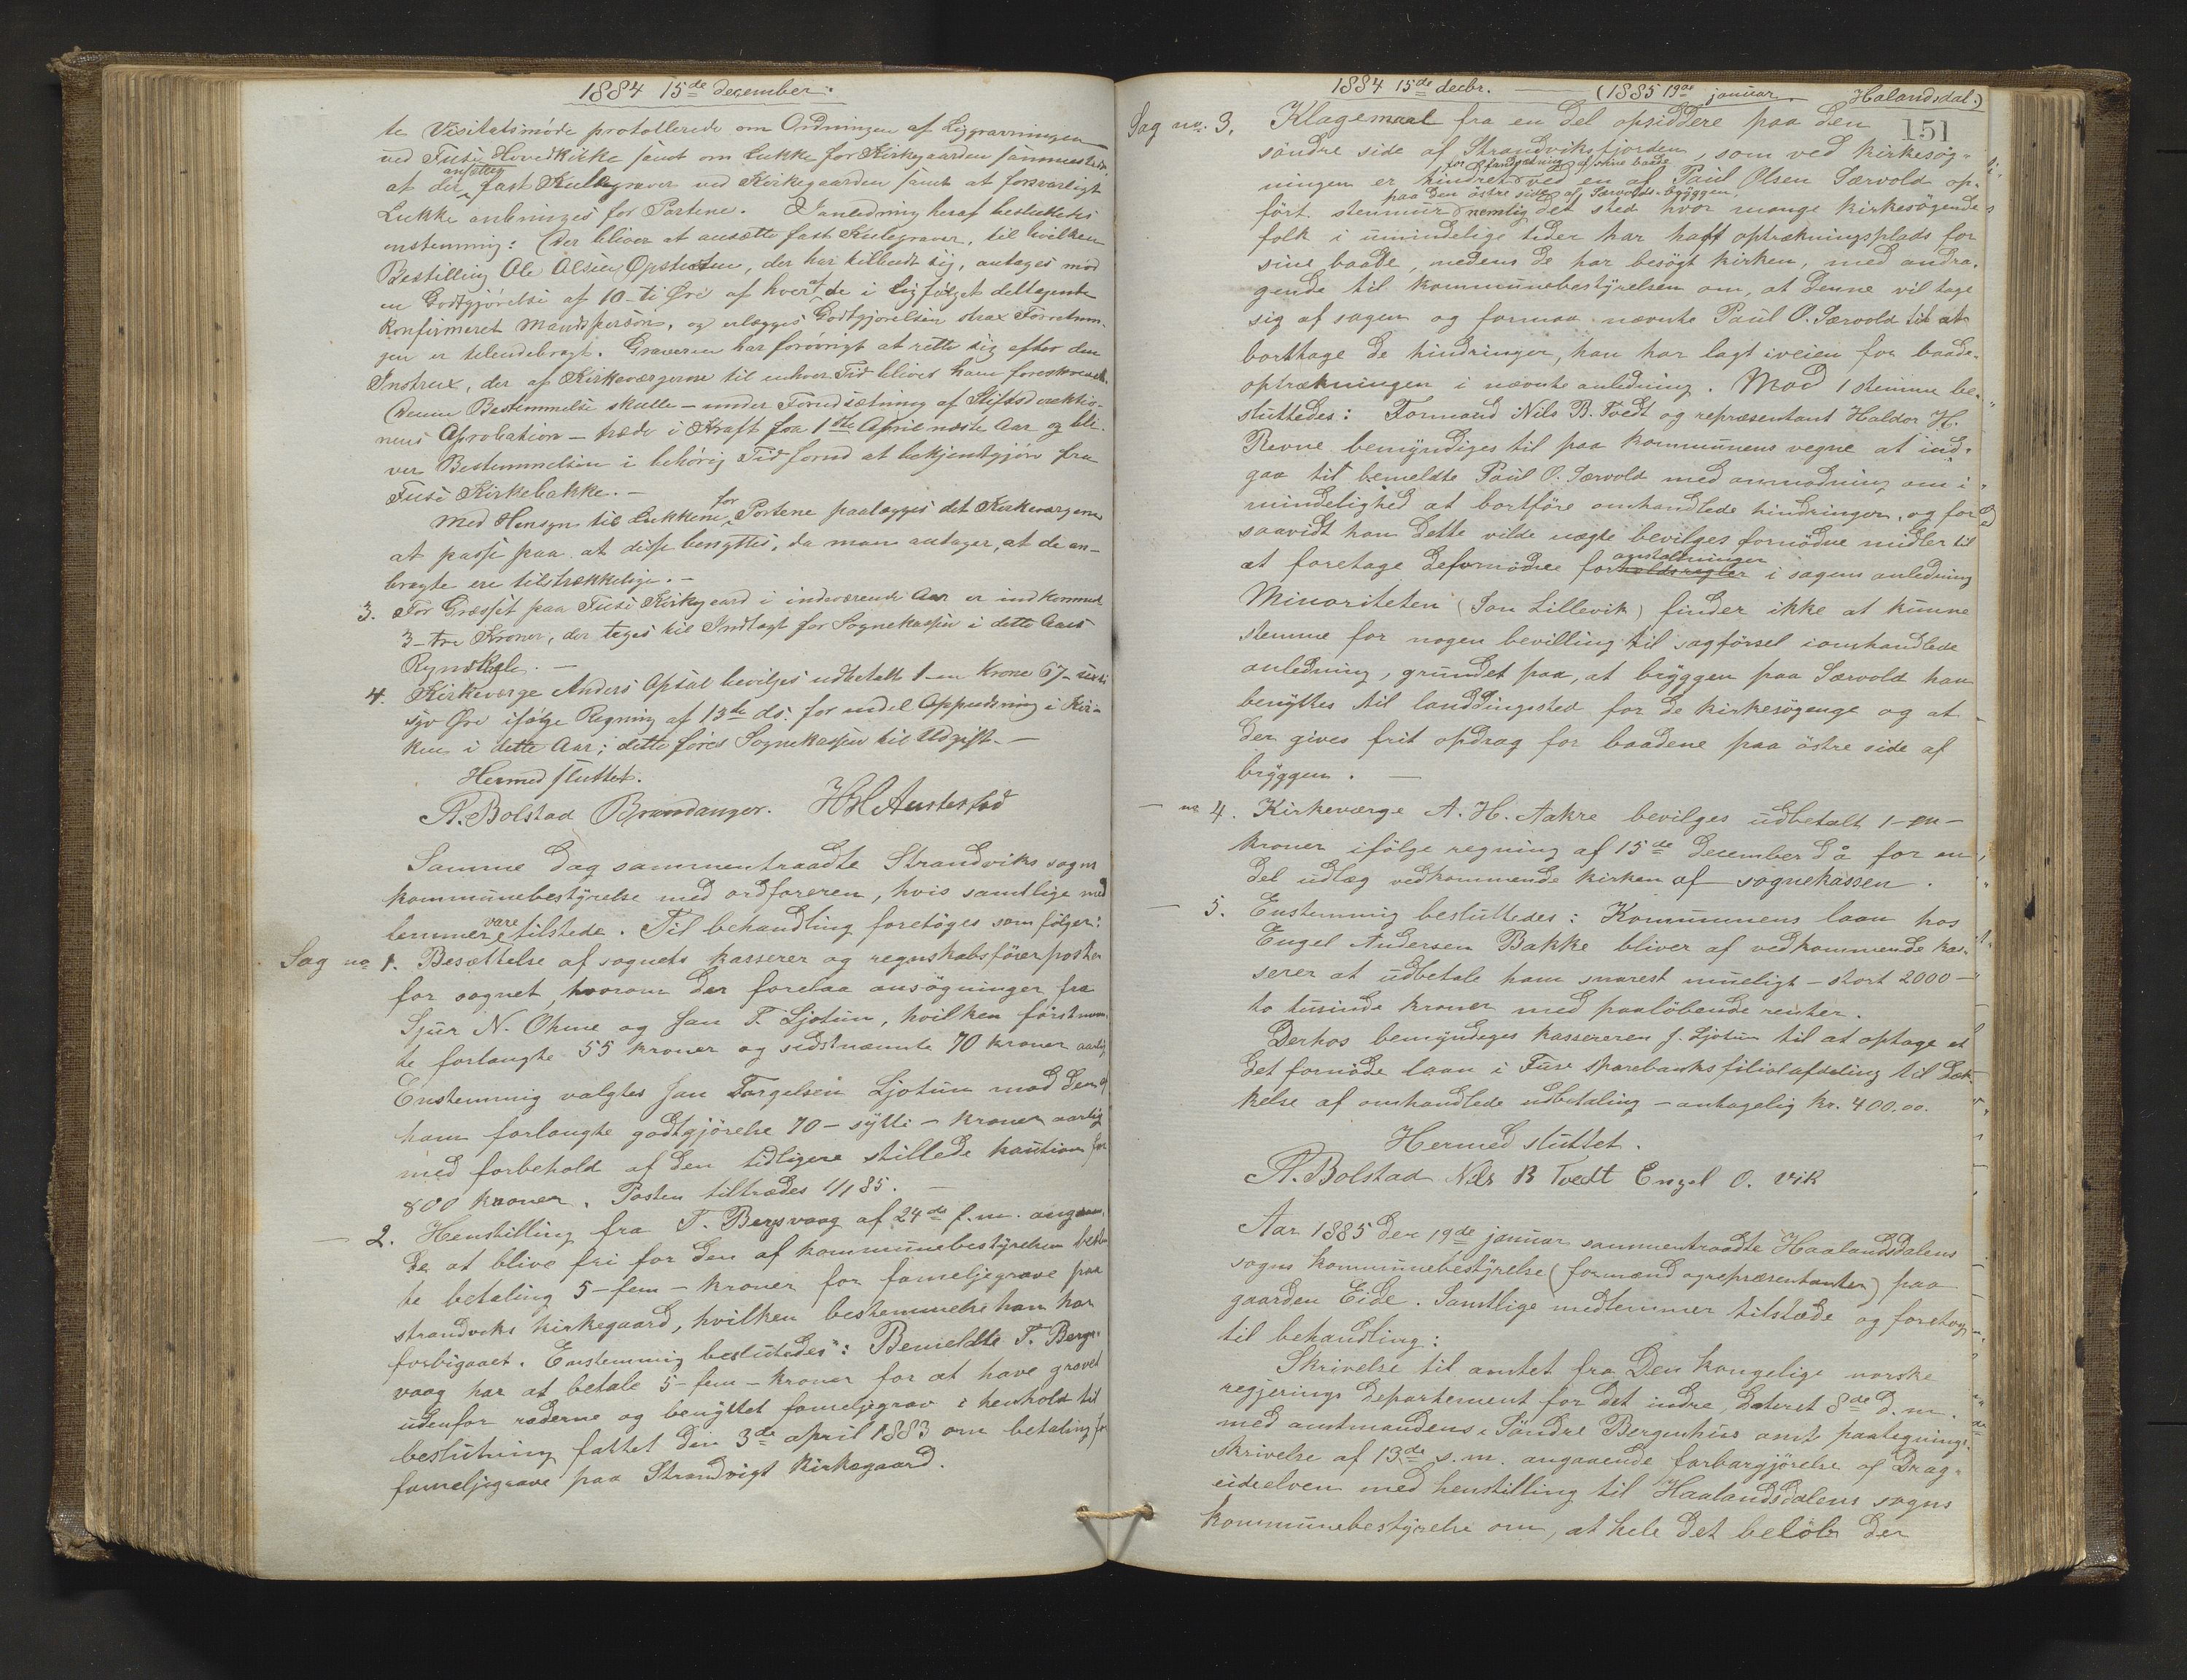 1884 15de december.
te Visitatsmøde protollerede om Ordningen af Liggravningen
ved Fuse Hovedkirke samt om Lukke for Kirkegaarden sammesteds
ansættes
at der fast Kulegraver ved Kirkegaarden samt at forsvarligt
Lukke anbringes for Portene. I Anledning heraf besluttedes
enstemmig: Der bliver at ansætte fast Kulegraver, til hvilken
Bestilling Ole Olsen Opstatun, der har tilbudt sig, antages mod
en Godtgjørelse af 10 - ti Øre af hver de i Ligfølget deltagende
konfirmeret Mandsperson, og erlægges Godtgjørelsen strax Forretnin-
gen er tilendebragt. Graveren har forøvrigt at rette sig efter den
Instrux, der af Kirkeværgerne til enhver Tid bliver ham foreskrevet.
Denne Bestemmelse skulle - under Forudsætning af Stiftsdirektio-
nens Aprobation - træde i Kraft fra 1ste April næste Aar og bli-
ver Bestemmelsen i behørig Tid forud at bekjendtgjøre fra
Fuse Kirkebakke. -
for
Med Hensyn til Lukkene Portene paalægges det Kirkeværgerne
at passe paa at disse benyttes, da man antager, at de an-
bragte ere tilstrækkelige. -
3. For Græsset paa Fuse Kirkegaard i indeværende Aar er indkommet
3 - tre Kroner, der tages til Indtægt for Sognekassen i dette Aars
Regnskab. -
4. Kirkeværge Anders Opsal bevilges udbetalt 1 - en Krone 67 - sexti
syv Øre ifølge Regning af 13de ds. for endel Oppudsning i Kir-
ken i dette Aar; dette føres Sognekassen til Udgift. -
Hermed sluttet.
A. Bolstad Brandanger. H H Austestad
Samme dag sammentraadte Strandviks sogns
kommunebestyrelse med ordføreren, hvis samtlige med
vare
lemmer tilstede. Til behandling foretoges som følger:
Sag no 1. Besættelse af sognets kasserer og regnskabsførerposten
for sognet, hvorom der forelaa ansøgninger fra
Sjur N. Ohme og Jan T. Ljotun, hvilken førstnævn-
te forlangte 55 kroner og sidstnævnte 70 kroner aarlig
Enstemmig valgtes Jan Torgelsen Ljotun mod den af
ham forlangte godtgjørelse 70 - sytti - kroner aarlig
med forbehold af den tidligere stillede kaution for
800 kroner. Posten tiltrædes 1/1 85. -
- 2. Henstilling fra T. Bergsvaag af 24de f.m. angaaen-
de at blive fri for den af kommunebestyrelsen bestem
te betaling 5 - fem - kroner for fameljegrave paa
strandviks kirkegaard, hvilken bestemmelse han har
forbigaaet. Enstemmig beslutedes: Bemeldte T. Bergs-
vaag har at betale 5 - fem - kroner for at have gravet
udenfor raderne og benyttet fameljegrav i henhold til
beslutning fattet den 3de april 1883 om betaling for
fameljegrave paa Strandvigt kirkegaard.
1884 15de decbr. - (1885 19de januar - Halandsdal.)
151
Sag no. 3. Klagemaal fra en del opsiddere paa den
søndre side af Strandviksfjorden, som ved kirkesøg-
for landsætning af sine baade
ningen er hindret ved en af Paul Olsen Særvold op-
paa den østre side af Særvolds-bryggen
ført stenmur nemlig det sted hvor mange kirkesøgende
folk i umindelige tider har haft optrækningsplads for
sine baade, medens de har besøgt kirken, med andra-
gende til kommunebestyrelsen om, at denne vil tage
sig af sagen og formaa nævnte Paul O. Særvold til at
borttage de hindringer, han har lagt iveien for baade-
optrækningen i nævnte anledning. Mod 1 stemme be-
sluttedes: Formand Nils B. Tvedt og repræsentant Haldor H.
Revne bemyndiges til paa kommunens vegne at ind-
gaa til bemeldte Paul O. Særvold med anmodning om i
mindelighed at bortføre omhandlede hindringer, og for
saavidt han dette vilde nægte bevilges fornødne midler til
anstaltninger
at foretage defornødne forholdsregler i sagens anledning
Minoriteten (Jon Lillevik) finder ikke at kunne
stemme for nogen bevilling til sagførsel iomhandlede
anledning, grundet paa, at bryggen paa Særvold kan
benyttes til landdingssted for de kirkesøgenge og at
der gives frit opdrag for baadene paa østre side af
bryggen. -
- no 4. Kirkeværge A. H. Aakre bevilges udbetalt 1 - en -
kroner ifølge regning af 15de december då for en
del udlæg vedkommende kirken af sognekassen.
- 5. Enstemmig besluttedes: Kommunens laan hos
Engel Andersen Bakke bliver af vedkommende kas-
serer at udbetale ham snarest mueligt - stort 2000 -
to tusinde kroner med paaløbende renter.
Derhos bemyndiges kassereren J. Ljotun til at optage et
det fornøde laan i Fuse Sparebanks filialafdeling til dæk-
kelse af omhandlede udbetaling - antagelig kr. 400.00.
Hermed sluttet.
A. Bolstad Nils B Tvedt Engel O. Vik
Aar 1885 den 19de januar sammentraadte Haalandsdalens
sogns kommunebestyrelse (formænd ogrepræsentanter) paa
gaarden Eide. Samtlige medlemmer tilstæde og foretoges
til behandling:
Skrivelse til amtet fra Den kongelige norske
regjerings departement for det indre, dateret 8de d.m.
med amtmandens i Søndre Bergenhus amt paategnings-
skrivelse af 13de s.m. angaaende farbargjørelse af Drag-
eideelven med henstilling til Haalandsdalens sogns
kommunebestyrelse om, at hele det beløb der